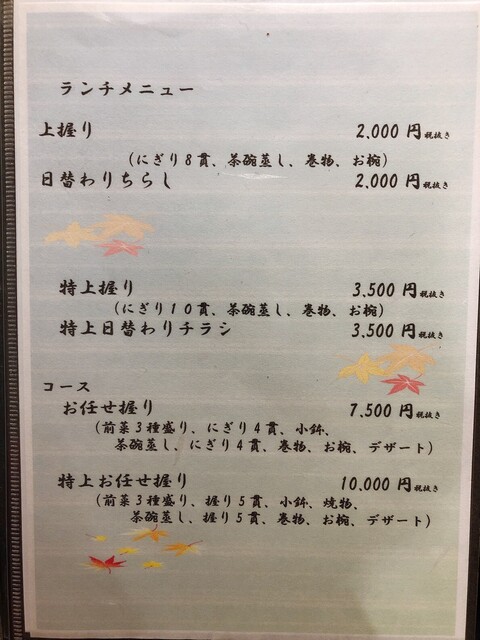 ランチメニュー
上握り 2,000 円税抜き
(にぎり8貫、茶碗蒸し、巻物、お椀)
日替わりちらし 2,000 円税抜き
特上握り 3,500 円税抜き
(にぎり10貫、茶碗蒸し、巻物、お椀)
特上日替わりチラシ 3,500 円税抜き
コース
お任せ握り 7,500 円税抜き
(前菜3種盛り、にぎり4貫、小鉢、
茶碗蒸し、にぎり4貫、巻物、お椀、デザート)
特上お任せ握り 10,000 円税抜き
(前菜3種盛り、握り5貫、小鉢、焼物、
茶碗蒸し、握り5貫、巻物、お椀、デザート)